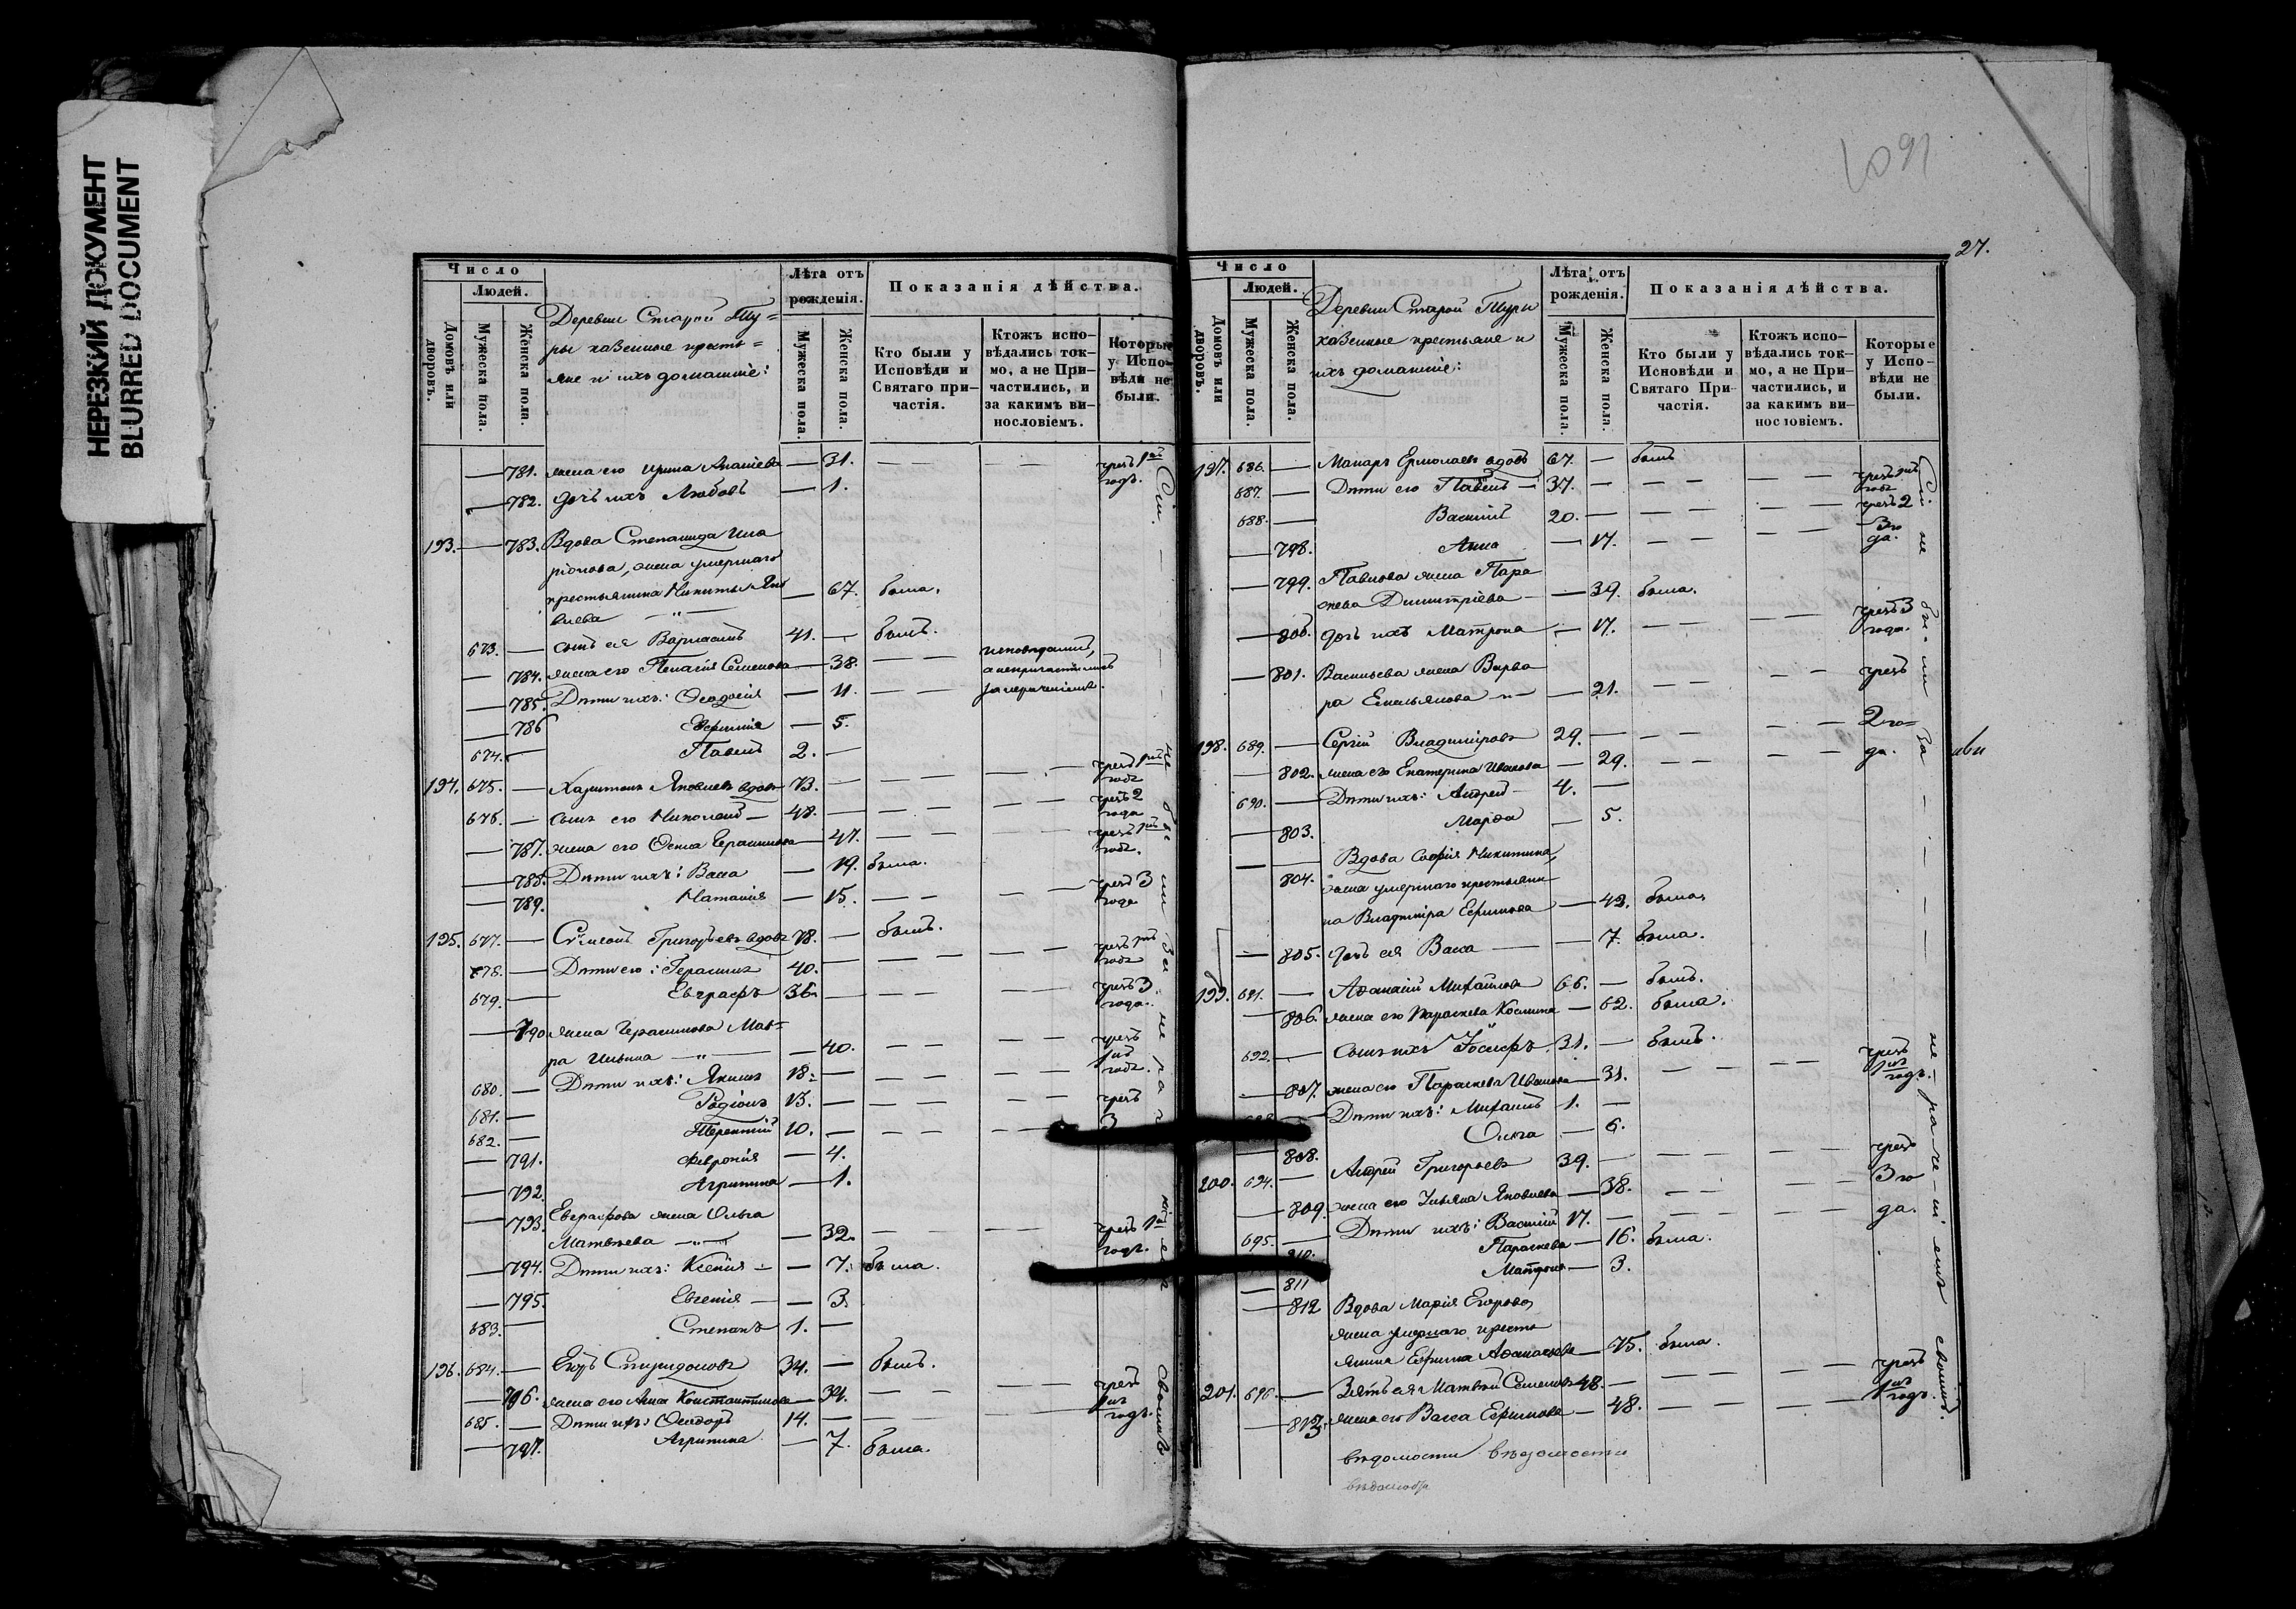 НЕРЕЗКИЙ ДОКУМЕНТ
BLURRED DOCUMENT
Число
Людей.
Домовъ или дворовъ.
Мужеска пола.
Женска пола.
Деревни Старой Ту=
ры казенные кресть=
яне и ихъ домашніе:
Лѣта отъ рожденія.
Мужеска пола.
Женска пола.
Показанія дѣйства.
Кто были у Исповѣди и Святаго при-частія.
Ктожъ испо-вѣдались ток-мо, а не При-частились, и за какимъ ви-нословіемъ.
Которые у Испо-вѣди не были.
— 781. жена его Ирина — 31. — — — — чрезъ 1й годъ.
— 782. дочь ихъ Любовь — 1.
193. — 783. Вдова Степанида Ила
ріонова, жена умершаго
крестьянина Никиты Яко
влева — „ — — 67. была.
673. — сынъ ея Варлаамъ 41. — былъ.
— 784. жена его Пелагія Семенова — 38. — — исповѣдались,
— 785. Дѣти ихъ: Ѳеодосія — 11. — — а непричастились
за
— 786 Евфимія — 5.
674. — Павелъ 2. —
194. 675. — Харитонъ Яковлевъ вдовъ 73. — — — — — чрезъ 1й годъ
676. — сынъ его Николай — 48. — — — — — чрезъ 2 года
— 787. жена его Ѳекла Герасимова — 47. — — — — чрезъ 1й годъ.
— 788. Дѣти ихъ: Васса — 19. была.
— 789. Наталія — 15. — — — — чрезъ 3 года
195. 677. — Григорьевъ вдовъ 78. — былъ.
678. — Дѣти его: Герасимъ 40. — — — — — чрезъ 1й годъ
679. — Евграфъ 36. — — — — — чрезъ 3 года.
— 790 жена Герасимова Мав=
ра Ильина — „ — — 40. — — — — чрезъ 1й годъ.
680. — Дѣти ихъ: Якимъ 18. — — — — —
681. — Родіонъ 13. — — — — — чрезъ
682. — Терентій 10. — — — — — 3
— 791. Февронія — 4.
— 792. Агрипина — 1.
— 793. Евграфова жена Ольга
Матвѣева — „ — — 32. — — — — чрезъ 1й годъ.
— 794. Дѣти ихъ: Ксенія — — 7. была.
— 795. Евгенія — — 3.
683. — Степанъ 1. —
196. 684. — Егоръ Спиридоновъ 34. — былъ.
— 796. жена его Анна Константинова — 34. — — — — чрезъ 1й годъ.
685. — Дѣти ихъ: Ѳедоръ 14. — — —
— 797. Агрипина — 7. была.
Сіи — не бы — ли за не ра че ніемъ своимъ
27.
Число
Людей.
Домовъ или дворовъ.
Мужеска пола.
Женска пола.
Деревни Старой Туры
казенные крестьяне и
ихъ домашніе:
Лѣта отъ рожденія.
Мужеска пола.
Женска пола.
Показанія дѣйства.
Кто были у Исповѣди и Святаго При-частія.
Ктожъ испо-вѣдались ток-мо, а не При-частились, и за какимъ ви-нословіемъ.
Которые у Испо-вѣди не были.
197. 686. — Макаръ Ермолаевъ вдовъ 67. — былъ
687. — Дѣти его Павелъ — 37. — — — — — чрезъ 1й годъ
688. — Василій 20. — — — — — чрезъ 2
— 798. Анна — 17. — — — — 3 го да.
— 799. Павлова жена Пара
скева Димитріева — — 39. была.
— 800. дочь ихъ Матрона — 17. — — — — чрезъ 3 года.
— 801. Васильева жена Варва
ра Емельянова — „ — — 21. — — — — чрезъ
198. 689. — Сергій Владиміровъ 29. — — — — — 2 го=
— 802. жена его Екатерина Иванова — 29. — — — — да.
690. — Дѣти ихъ: Андрей — 4. —
— 803. Марѳа — 5.
— 804. Вдова Софія Никитина,
жена умершаго крестьяни
на Владиміра Ефимова — 42. была.
— 805. дочь ея Васса — — 7. была.
199. 691. — Аѳанасій Михайловъ 66. — былъ.
— 806. жена его Параскева Космина — 62. была.
692. — сынъ ихъ Іосифъ 31. — былъ.
— 807. жена его Параскева Иванова — 31. — — — — чрезъ 1й годъ.
— Дѣти ихъ: Михаилъ 1. —
— 808. Ольга — 6.
200. 694. — Андрей Григорьевъ 39. — — — — — чрезъ
— 809. жена его Ульяна Яковлева — 38. — — — — 3 го
695. — Дѣти ихъ: Василій 17. — — — — — да.
810. Параскева — 16. была.
— 811 Матрона — 3.
— 812 Вдова Марія Егорова,
жена умершаго кресть
янина Ефима Аѳанасьева — 75. была.
201. 696. — Зять ея Матвѣй Семеновъ 48. — — — — — чрезъ 1й годъ.
— 813. жена его Васса Ефимова — 48. — — — —
вѣдомости вѣдомости
Сіи не бы — ли за — не — ра — че — ні емъ своимъ.